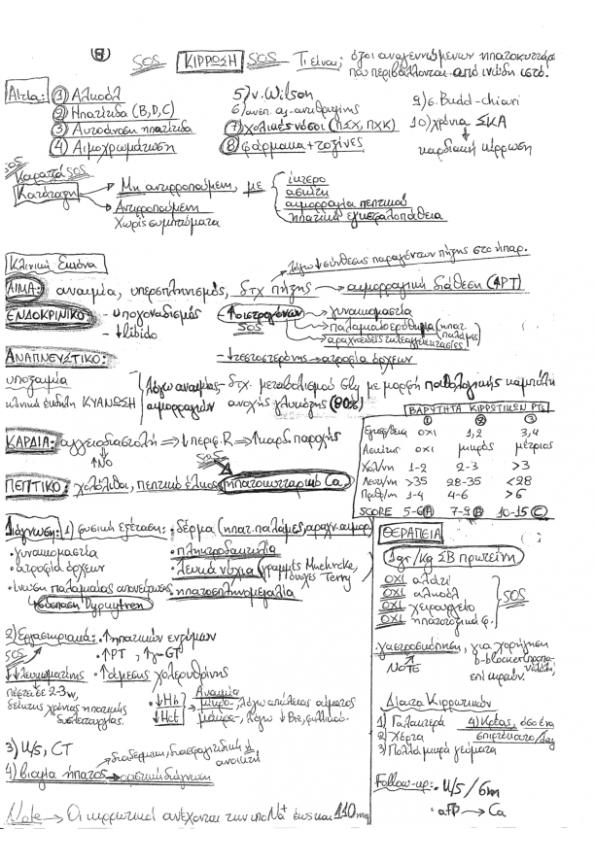 ⑧
SOS ΚΙΡΡΩΣΗ SOS Τι είναι; όζοι αναγεννώμενων ηπατοκυττάρων
που περιβάλλονται από ινώδη ιστό.
Αίτια: ① Αλκοόλ 5) ν. Wilson 9) σ. Budd-chiari
② Ηπατίτιδα (B, D, C) 6) ανεπ. α1-αντιθρυψίνης 10) χρόνια ΣΚΑ
③ Αυτοάνοση ηπατίτιδα ⑦ Χολικές νόσοι (ΠΣΧ, ΠΧΚ) ↓
④ Αιμοχρωμάτωση ⑧ φάρμακα + τοξίνες καρδιακή κίρρωση
SOS Καραπα SOS
Κατάταξη → Μη αντιρροπούμενη, με ίκτερο
ασκίτη
αιμορραγία πεπτικού
ηπατική εγκεφαλοπάθεια
→ Αντιρροπούμενη
χωρίς συμπτώματα
Κλινική Εικόνα
λόγω ↓ σύνθεσης παραγόντων πήξης στο ήπαρ.
ΑΙΜΑ: αναιμία, υπερσπληνισμός, δτχ πήξης → αιμορραγική διάθεση (↑PT)
ΕΝΔΟΚΡΙΝΙΚΟ - υπογοναδισμός - ↑οιστρογόνων → γυναικομαστία
- ↓libido SOS → παλαμιαίο ερύθημα (ηπατ. παλάμες)
→ αραχνοειδείς τηλεαγγειεκτασίες
ΑΝΑΠΝΕΥΣΤΙΚΟ: - ↓τεστοστερόνης → ατροφία όρχεων
υποξαιμία λόγω αναιμίας - δτχ. μεταβολισμού Gly με μορφή παθολογικής καμπύλης
κλινική εκδήλωση ΚΥΑΝΩΣΗ αιμορραγιών ανοχής γλυκόζης (80%)
ΚΑΡΔΙΑ: αγγειοδιαστολή ⇒ ↓περιφ. R ⇒ ↑καρδ. παροχής
↑NO SOS
ΠΕΠΤΙΚΟ: χολόλιθοι, πεπτικό έλκος, ηπατοκυτταρικό Ca
ΒΑΡΥΤΗΤΑ ΚΙΡΡΩΤΙΚΩΝ PTS
① ② ③
Εγκεφ/θεια οχι 1,2 3,4
Ασκίτης οχι μικρός μέτριος
Χολ/νη 1-2 2-3 >3
Λευκ/νη >35 28-35 <28
Προθ/νη 1-4 4-6 >6
SCORE 5-6 Ⓐ 7-9 Ⓑ 10-15 Ⓒ
Διάγνωση: 1) φυσική εξέταση: • δέρμα (ηπατ. παλάμες, αραχν. αιμορ
• γυναικομαστία • πληκτροδακτυλία
• ατροφία όρχεων • λευκά νύχια (γραμμές Muehrcke, όνυχες Terry
• ίνωση παλαμιαίας απονεύρωσης • ηπατοσπληνομεγαλία
↳ σύσπαση Dypuytren
2) Εργαστηριακά: • ↑ηπατικών ενζύμων
SOS • ↑PT, ↑γ-GT
↓↓λευκωματίνης • ↑άμεσης χολερυθρίνης
πέφτει σε 2-3w,
δείκτης χρόνιας ηπατικής
δυσλειτουργίας.
• ↓Hb Αναιμία
↓Hct μικρο-, λόγω απώλειας αίματος
μακρο-, λόγω ↓B12, φυλλικού.
3) U/S, CT
4) βιοψία ήπατος → διαδερμική, διασφαγιτιδική ή ανοικτή
→ οριστική διάγνωση
Note → Οι κιρρωτικοί ανέχονται την υπο Na+ έως και 110 mg
ΘΕΡΑΠΕΙΑ
1gr/Kg ΣΒ πρωτεΐνη
ΟΧΙ αλάτι
ΟΧΙ αλκοόλ SOS
ΟΧΙ χειρουργείο
ΟΧΙ ηπατοτοξικά φ.
• γαστροσκόπηση, για χορήγηση
NOTE β-blocker (προπανολόλη)
επί κιρσών.
Δίαιτα Κιρρωτικών
1) Γαλακτερά 4) Κρέας, όσο ένα
2) Χόρτα μπιφτεκάκι/day
3) Πολλά μικρά γεύματα
Follow-up: • U/S / 6m
• αFP → Ca